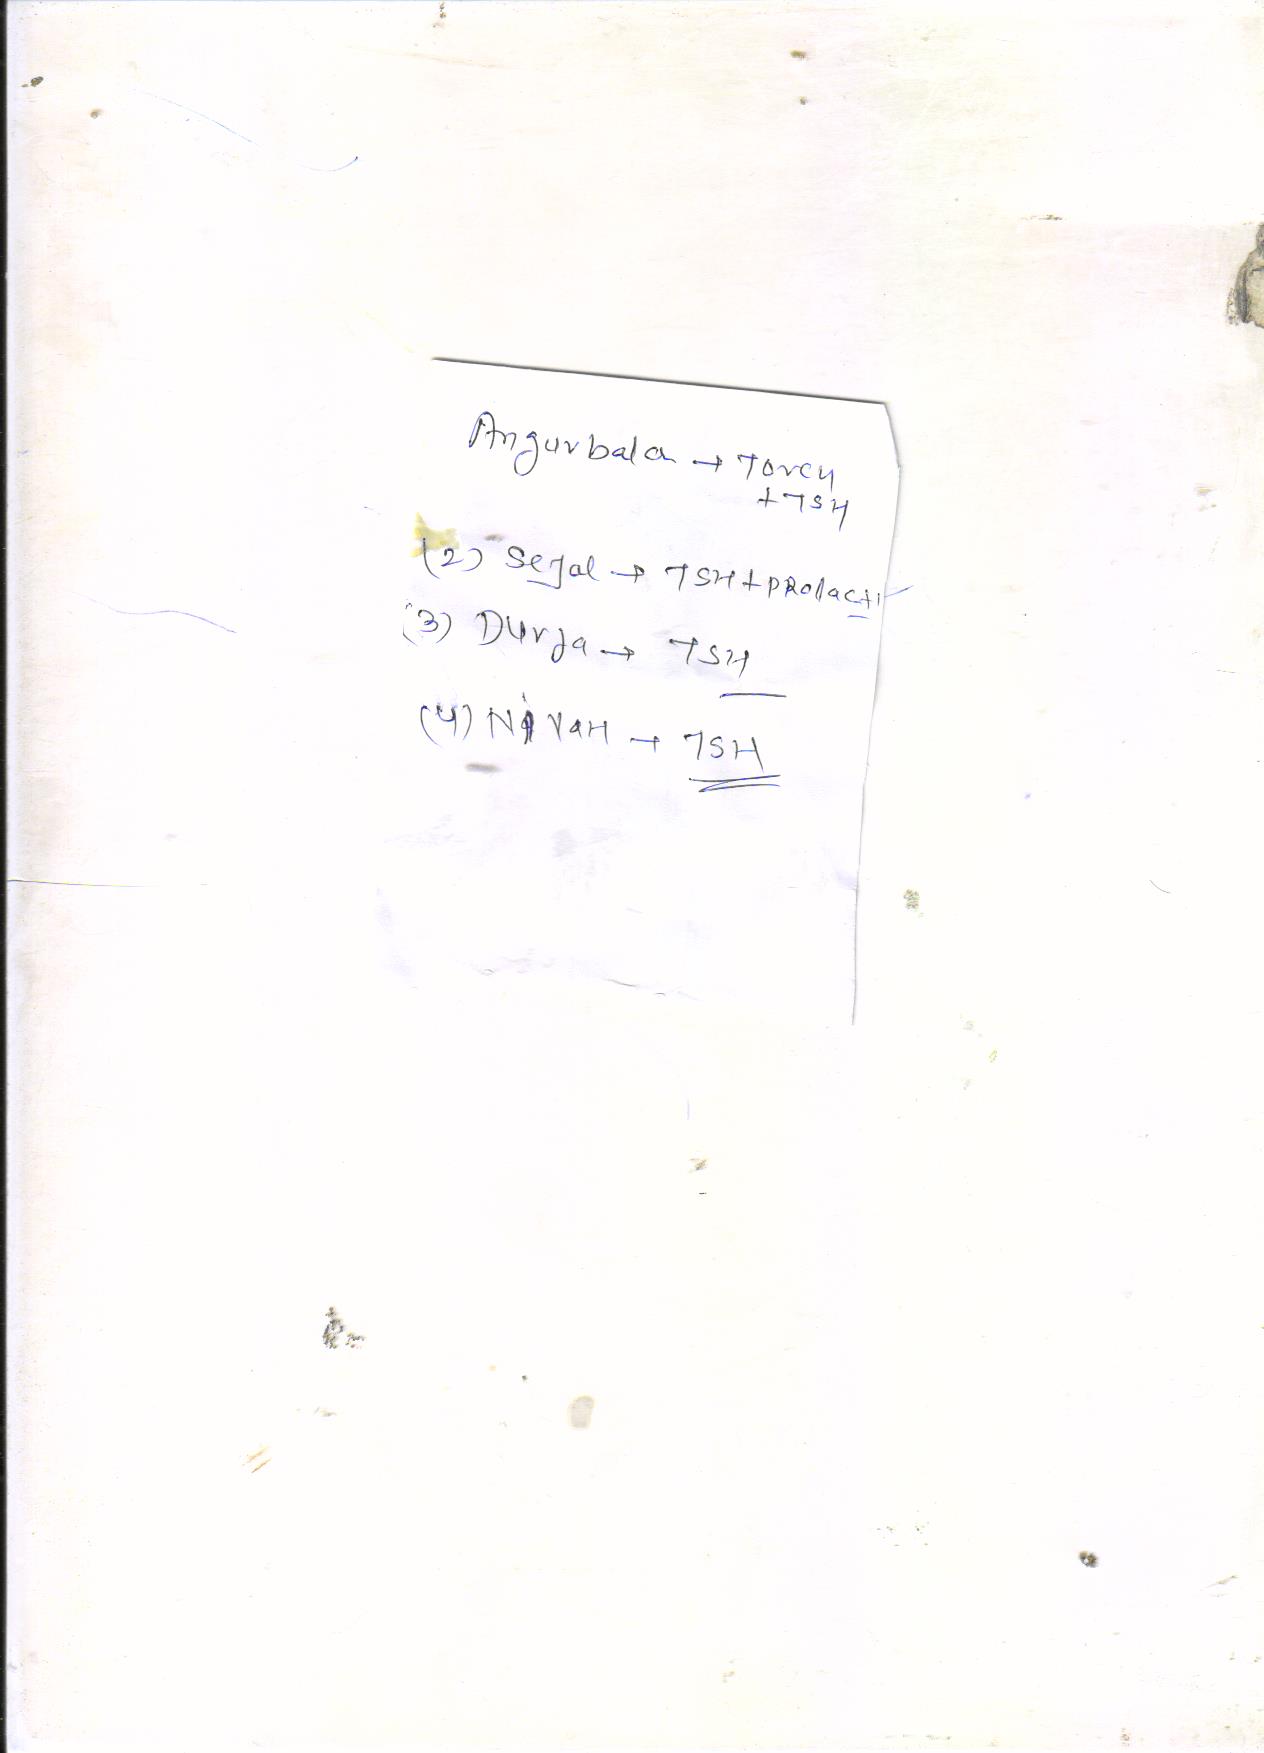 Angurbala → Torch
+ TSH
(2) Sejal → TSH + PRolacti
(3) Durja → TSH
(4) → TSH